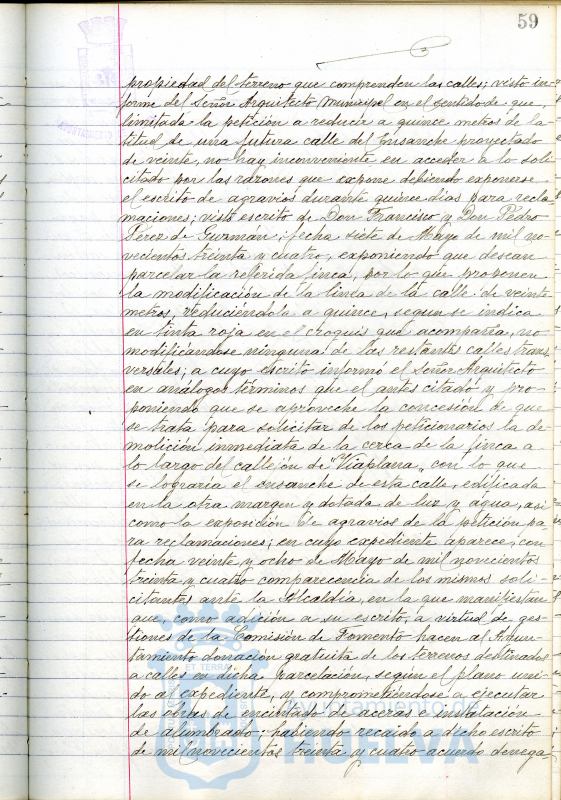 59
propiedad del terreno que comprenden las calles; visto in-
forme del Señor Arquitecto Municipal en el sentido de que,
limitada la petición a reducir a quince metros de la-
titud de una futura calle del Ensanche proyectado
de veinte, no hay inconveniente en acceder a lo soli-
citado por las razones que expone debiendo exponerse
el escrito de agravios durante quince dias para recla-
maciones; visto escrito de Don Francisco y Don Pedro
Pérez de Guzmán, fecha siete de Mayo de mil no-
vecientos treinta y cuatro, exponiendo que desean
parcelar la referida finca, por lo que proponen
la modificación de la linea de la calle de veinte
metros, reduciéndola a quince, segun se indica
en tinta roja en el croquis que acompaña, no
modificándose ninguna de las restantes calles trans
versales; a cuyo escrito informó el Señor Arquitecto
en análogos términos que el antes citado y pro-
poniendo que se aproveche la concesión de que
se trata para solicitar de los peticionarios la de-
molición inmediata de la cerca de la finca a
lo largo del callejón de "Viaplana", con lo que
se lograría el ensanche de esta calle, edificada
en la otra margen y dotada de luz y agua, asi
como la exposición de agravios de la petición pa
ra reclamaciones; en cuyo expediente aparece, con
fecha veinte y ocho de Mayo de mil novecientos
treinta y cuatro comparecencia de los mismos soli-
citantes ante la Alcaldía, en la que manifiestan
que, como adición a su escrito, a virtud de ges-
tiones de la Comisión de Fomento hacen al Ayun-
tamiento donación gratuita de los terrenos destinados
a calles en dicha parcelación, según el plano uni-
do al expediente, y comprometiéndose a ejecutar
las obras de encintado de aceras e instalación
de alumbrado; habiendo recaido a dicho escrito
de mil novecientos treinta y cuatro acuerdo denega-
Ayuntamiento de
HUELVA